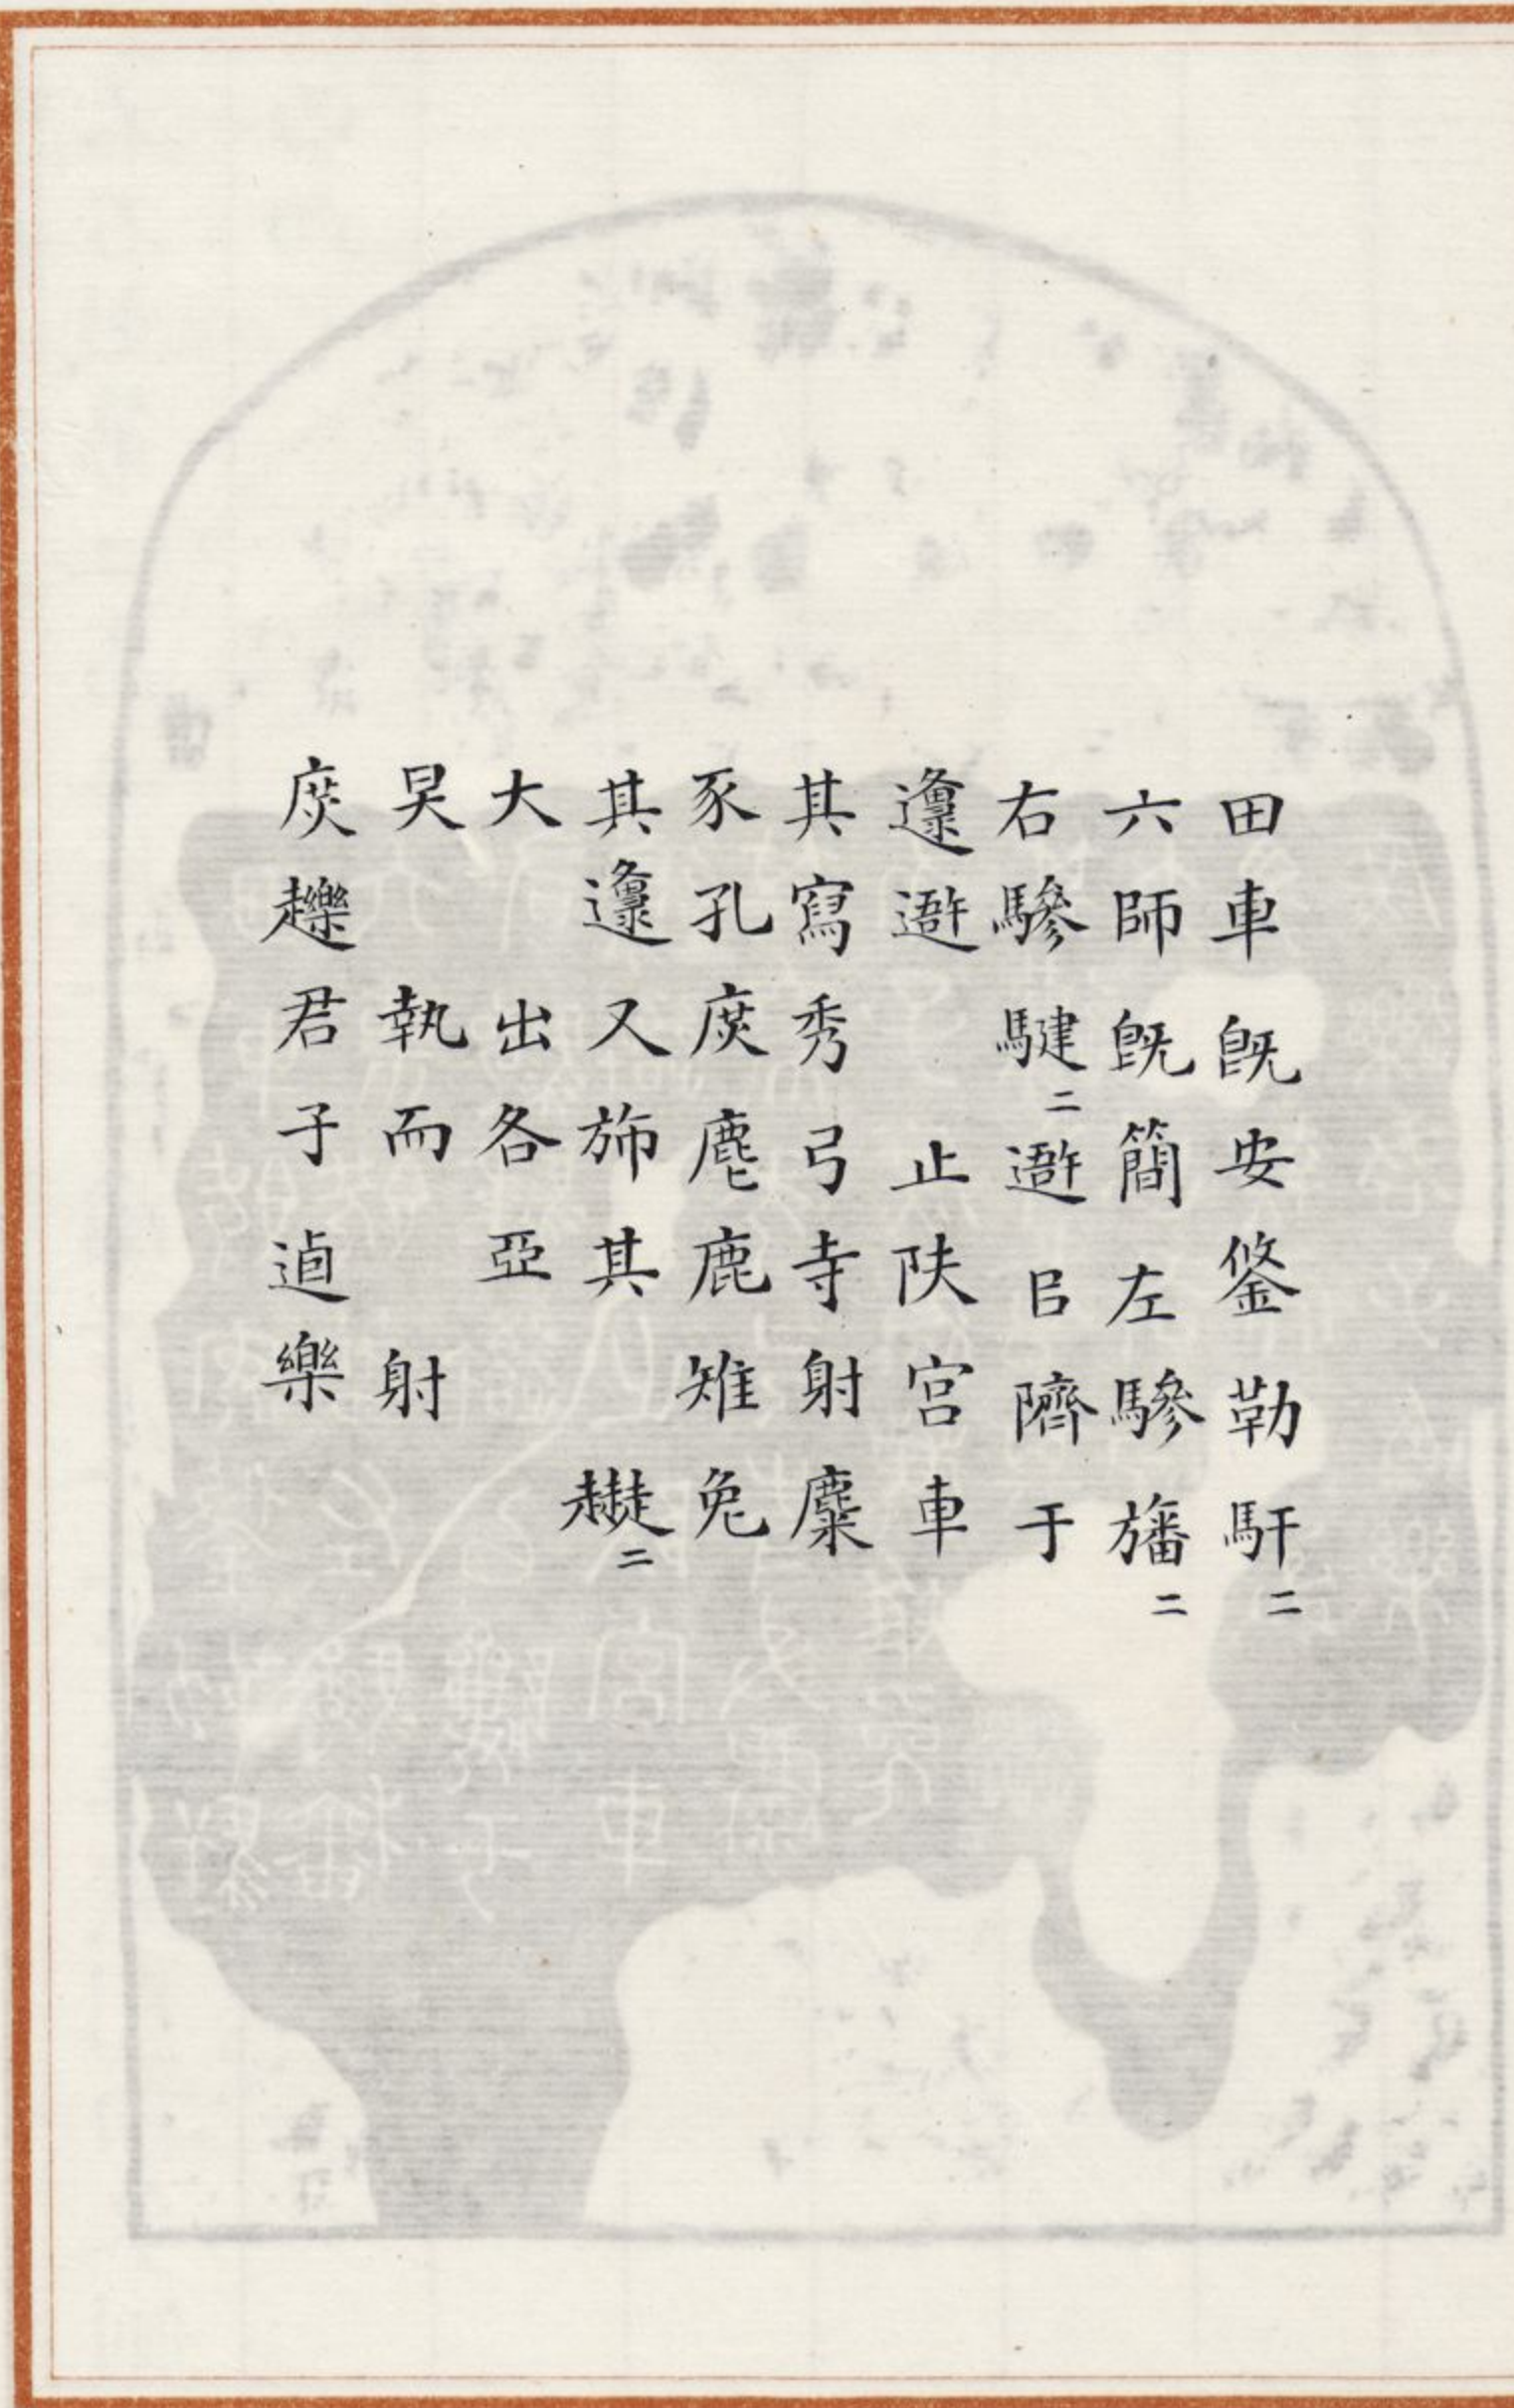 田車旣安鋚勒馯二
六師旣簡左驂旛二
右驂騝二遻㠯隮于
邍遻止陕宮車
其寫秀弓寺射麋
豕孔庶麀鹿雉兔
其邍又旆其趩二
大出各亞
昊執而射
庶趮君子逌樂